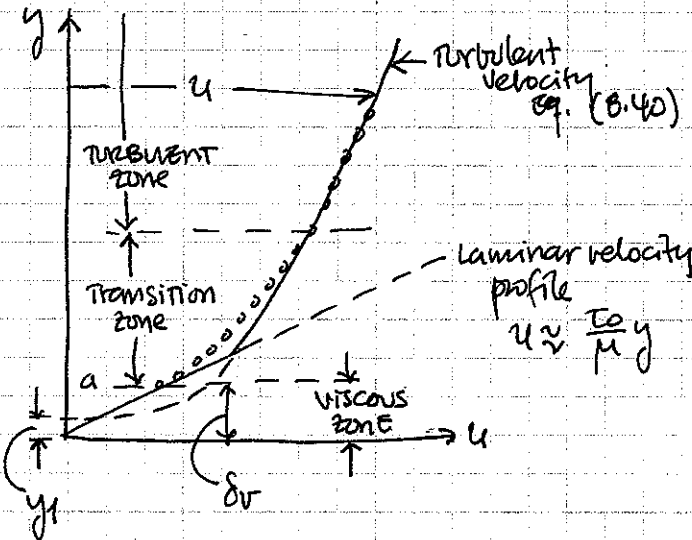 y
u
Turbulent
velocity
Eq. (8.40)
TURBULENT
zone
Transition
zone
Laminar velocity
profile
u ≈ τo/μ y
a
VISCOUS
ZONE
u
y1
δv